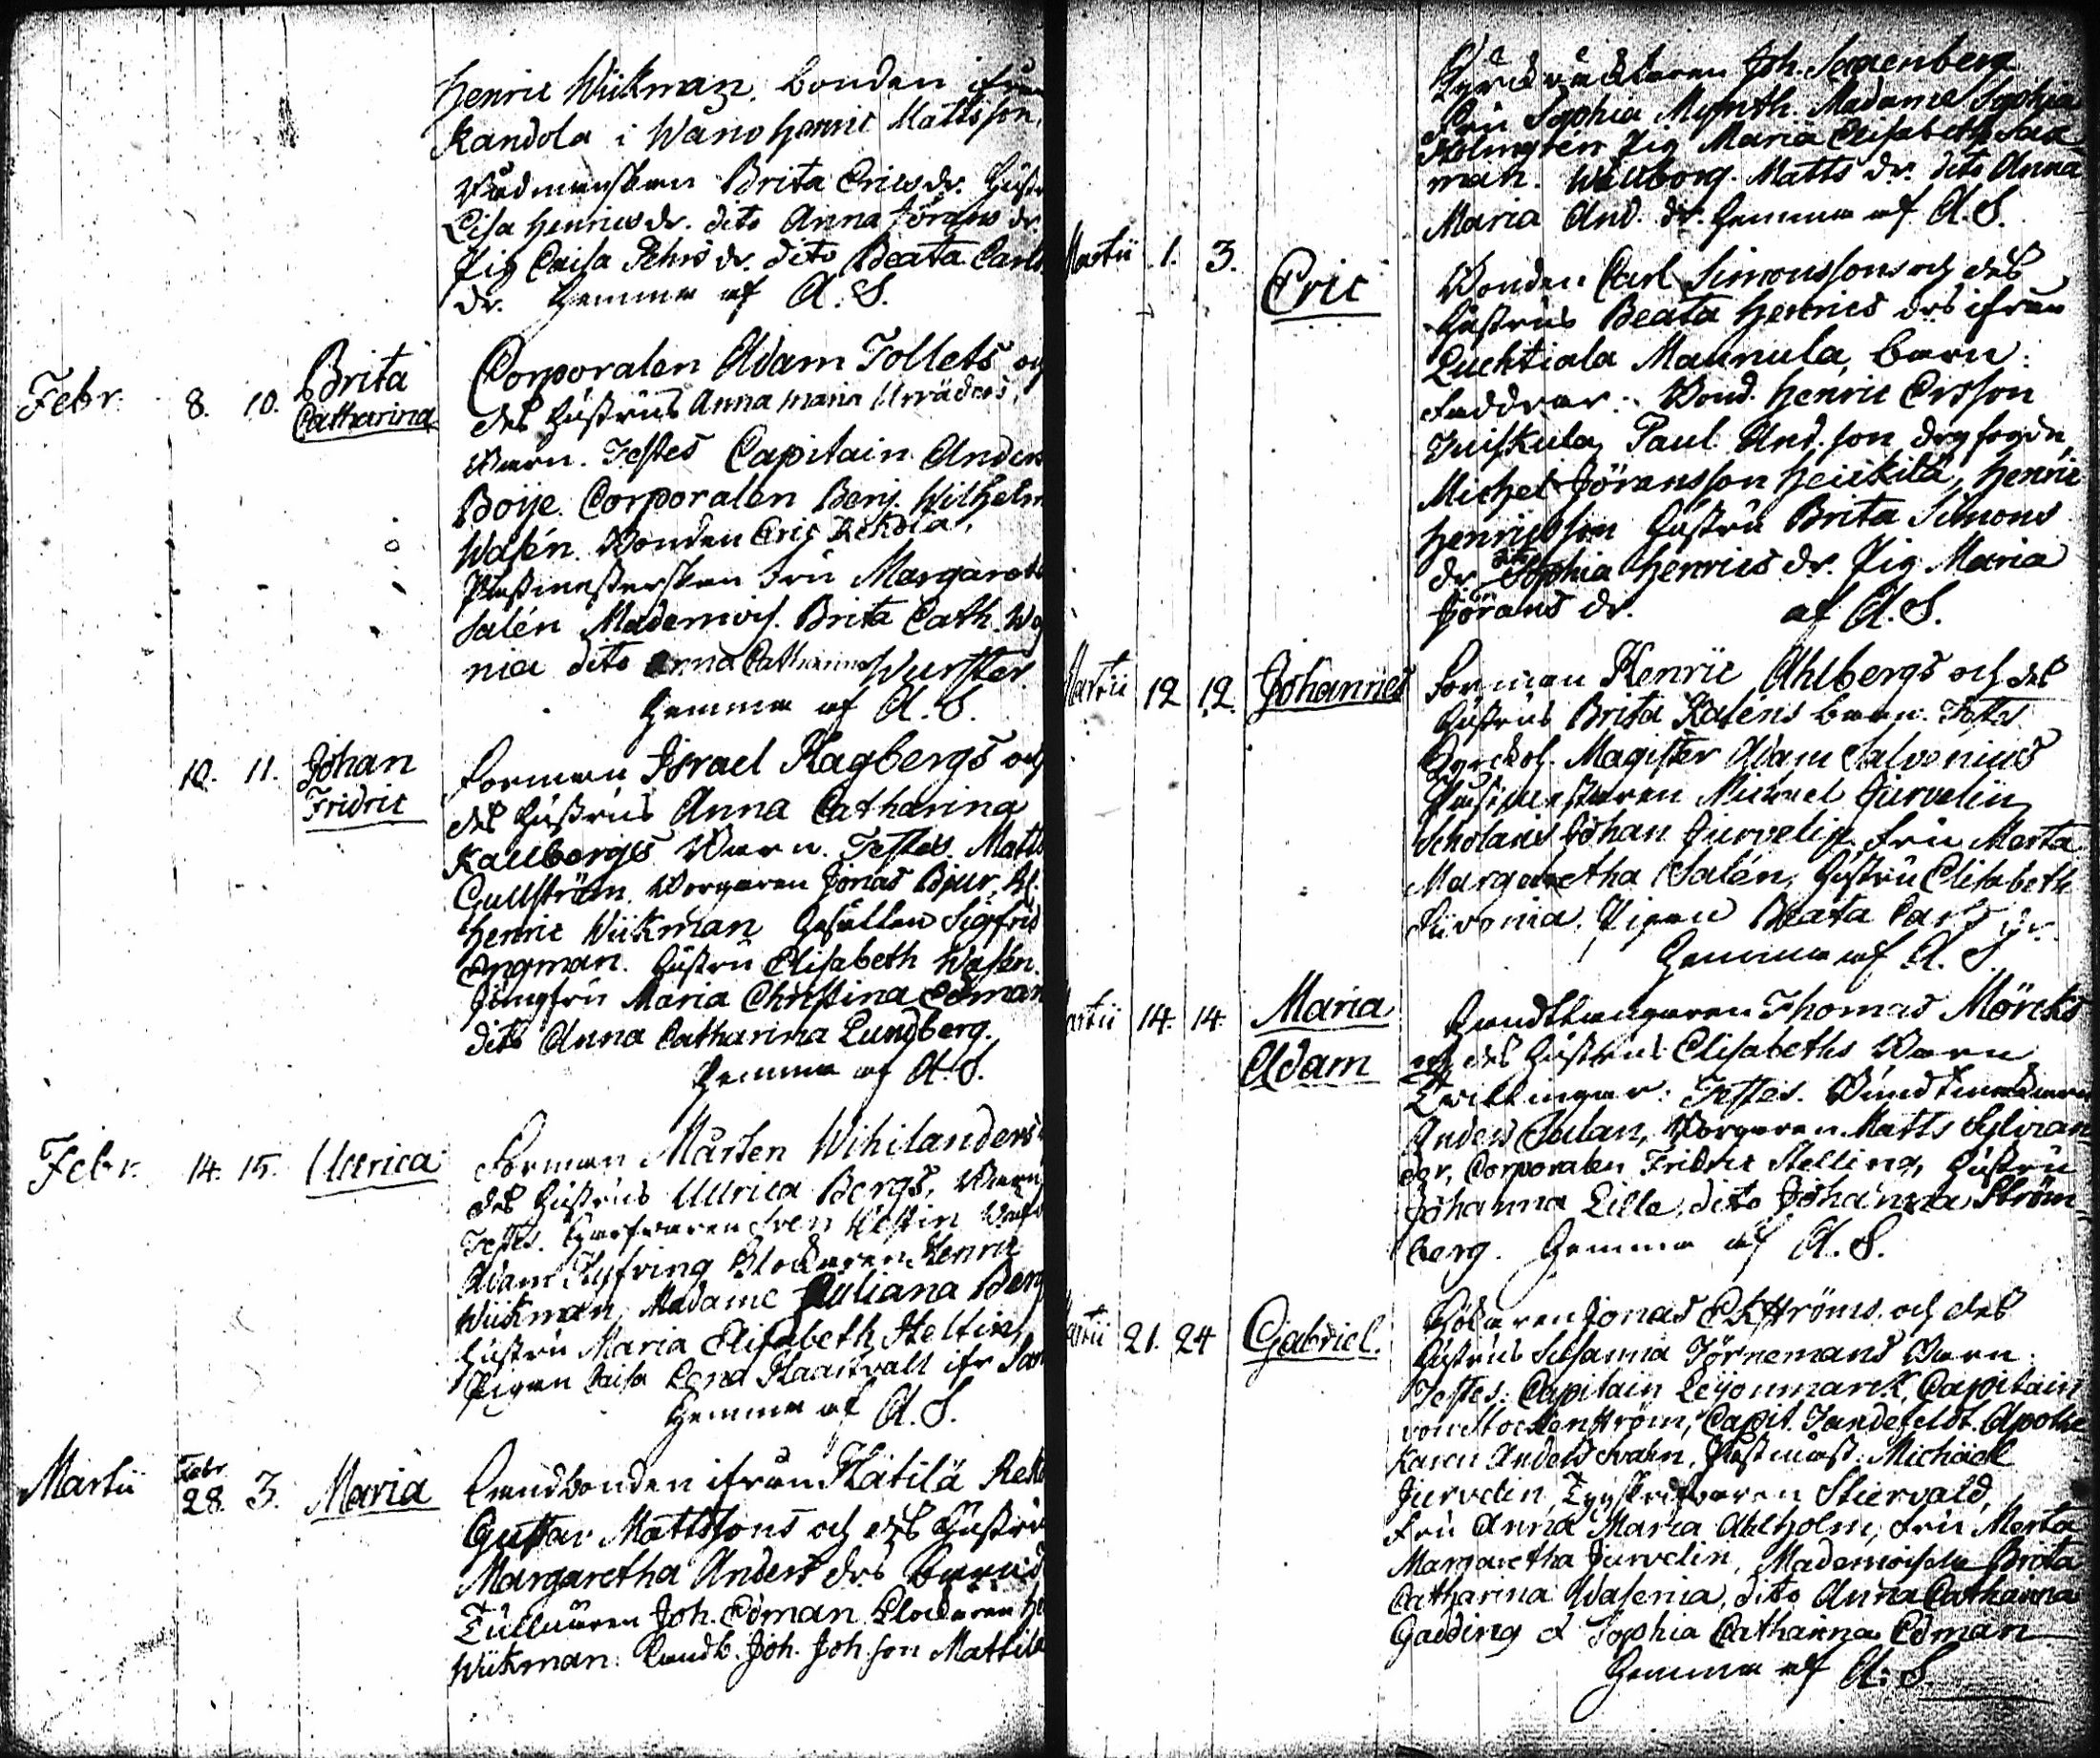 Henric Wiikman. bonden ifrån
Kandola i Wåno Henric Mattsson,
Brita Ericsdr. Hustr
Lisa Henricsdr. dito Anna Jörans dr.
Pig Caisa Pehrs dr. dito Beata Carls
dr. Hemma af A. S.
Febr. 8. 10. Brita Catharina
Corporalen Adam Tollets och
des hustrus Anna Maria
Barn. Testes Capitain Anders
Boije. Corporalen Benj. Wilhelm
Wasén. Bonden Eric Rekola,
Fru Margareta
Salén Mademois. Brita Cath. Wa
nia dito Anna Catharina Wurster
Hemma af A. S.
10. 11. Johan Fridric
Forman Israel Hagbergs och
des hustrus Anna Catharina
Kallbergs Barn. Testes Matts
Gullström. Borgaren Jonas Bjur, Kl.
Henric Wiikman Gesällen Sigfrid
Engman. Hustru Elisabeth Wasén.
Jungfru Maria Christina Edman
dito Anna Catharina Lundberg.
Hemma af A. S.
Febr. 14. 15. Ullrica
Forman Mårten Wihilanders
des hustrus Ullrica Bergs, Barn
Testes. Sven
Adam Klockaren Henric
Wiikman, Madame Juliana Berg
Hustru Maria Elisabeth Heltin,
Pigan Caisa Lena ifr
Hemma af A. S.
Martii Febr. 28. 3. Maria
Landbonden ifrån Hätilä
Gustav Mattssons och des Hustru
Margaretha Anders drs barn
Joh. Edman Klockaren He
Wiikman. Landb. Joh. Joh. son Mattila
Joh.
Fru Sophia Mynth. Madame Sophia
Holmgrén Pig Maria Elisabeth Sax
man. Wallborg Matts dr. dito Anna
Maria And. dr. Hemma af A. S.
Martii 1. 3. Eric
Bonden Carl Simonssons och des
hustrus Beata Henrics drs ifrån
Luchtiala Maunula, barn:
Faddrar: Bond. Henric Ersson
Paul And. son
Michel Jöransson Heickilä, Henric
Henricsson Hustru Brita Simons
dr. dito Sophia Henrics dr. Pig Maria
Jörans dr. af A. S.
Martii 12 12. Johannes
Forman Henric Ahlbergs och des
hustrus Brita Kalens barn. Testes
Magister Adam Salvenius
Michael Jurvelin,
Scholaris Johan Jurvelin. Fru Merta
Margaretha Salén, Hustru Elisabeth
Pigan Beata Carls dr.
Hemma af A. S.
Martii 14. 14. Maria Adam
Handtlangaren Thomas Mörcks
och des hustrus Elisabeths Barn
Twillingar. Testes.
Anders Borgaren Matts Sylvian
der, Corporalen Fridric Stelling, Hustru
Johanna Lille, dito Johanna Ström-
berg. Hemma af A. S.
Martii 21. 24 Gabriel.
Jonas Ekströms och des
Hustrus Susanna Törnemans Barn:
Testes: Capitain Leijonmarck, Capitain
von Stockenström, Capit. Jandefeldt. Apothe
karen Anders Svahn, Postmäst. Michael
Jurvelin, Stiervald,
Fru Anna Maria Ahlholm, Fru Merta
Margaretha Jurvelin, Mademoiselle Brita
Catharina Wasenia, dito Anna Catharina
Gadding & Sophia Catharina Edman
Hemma af A. S.